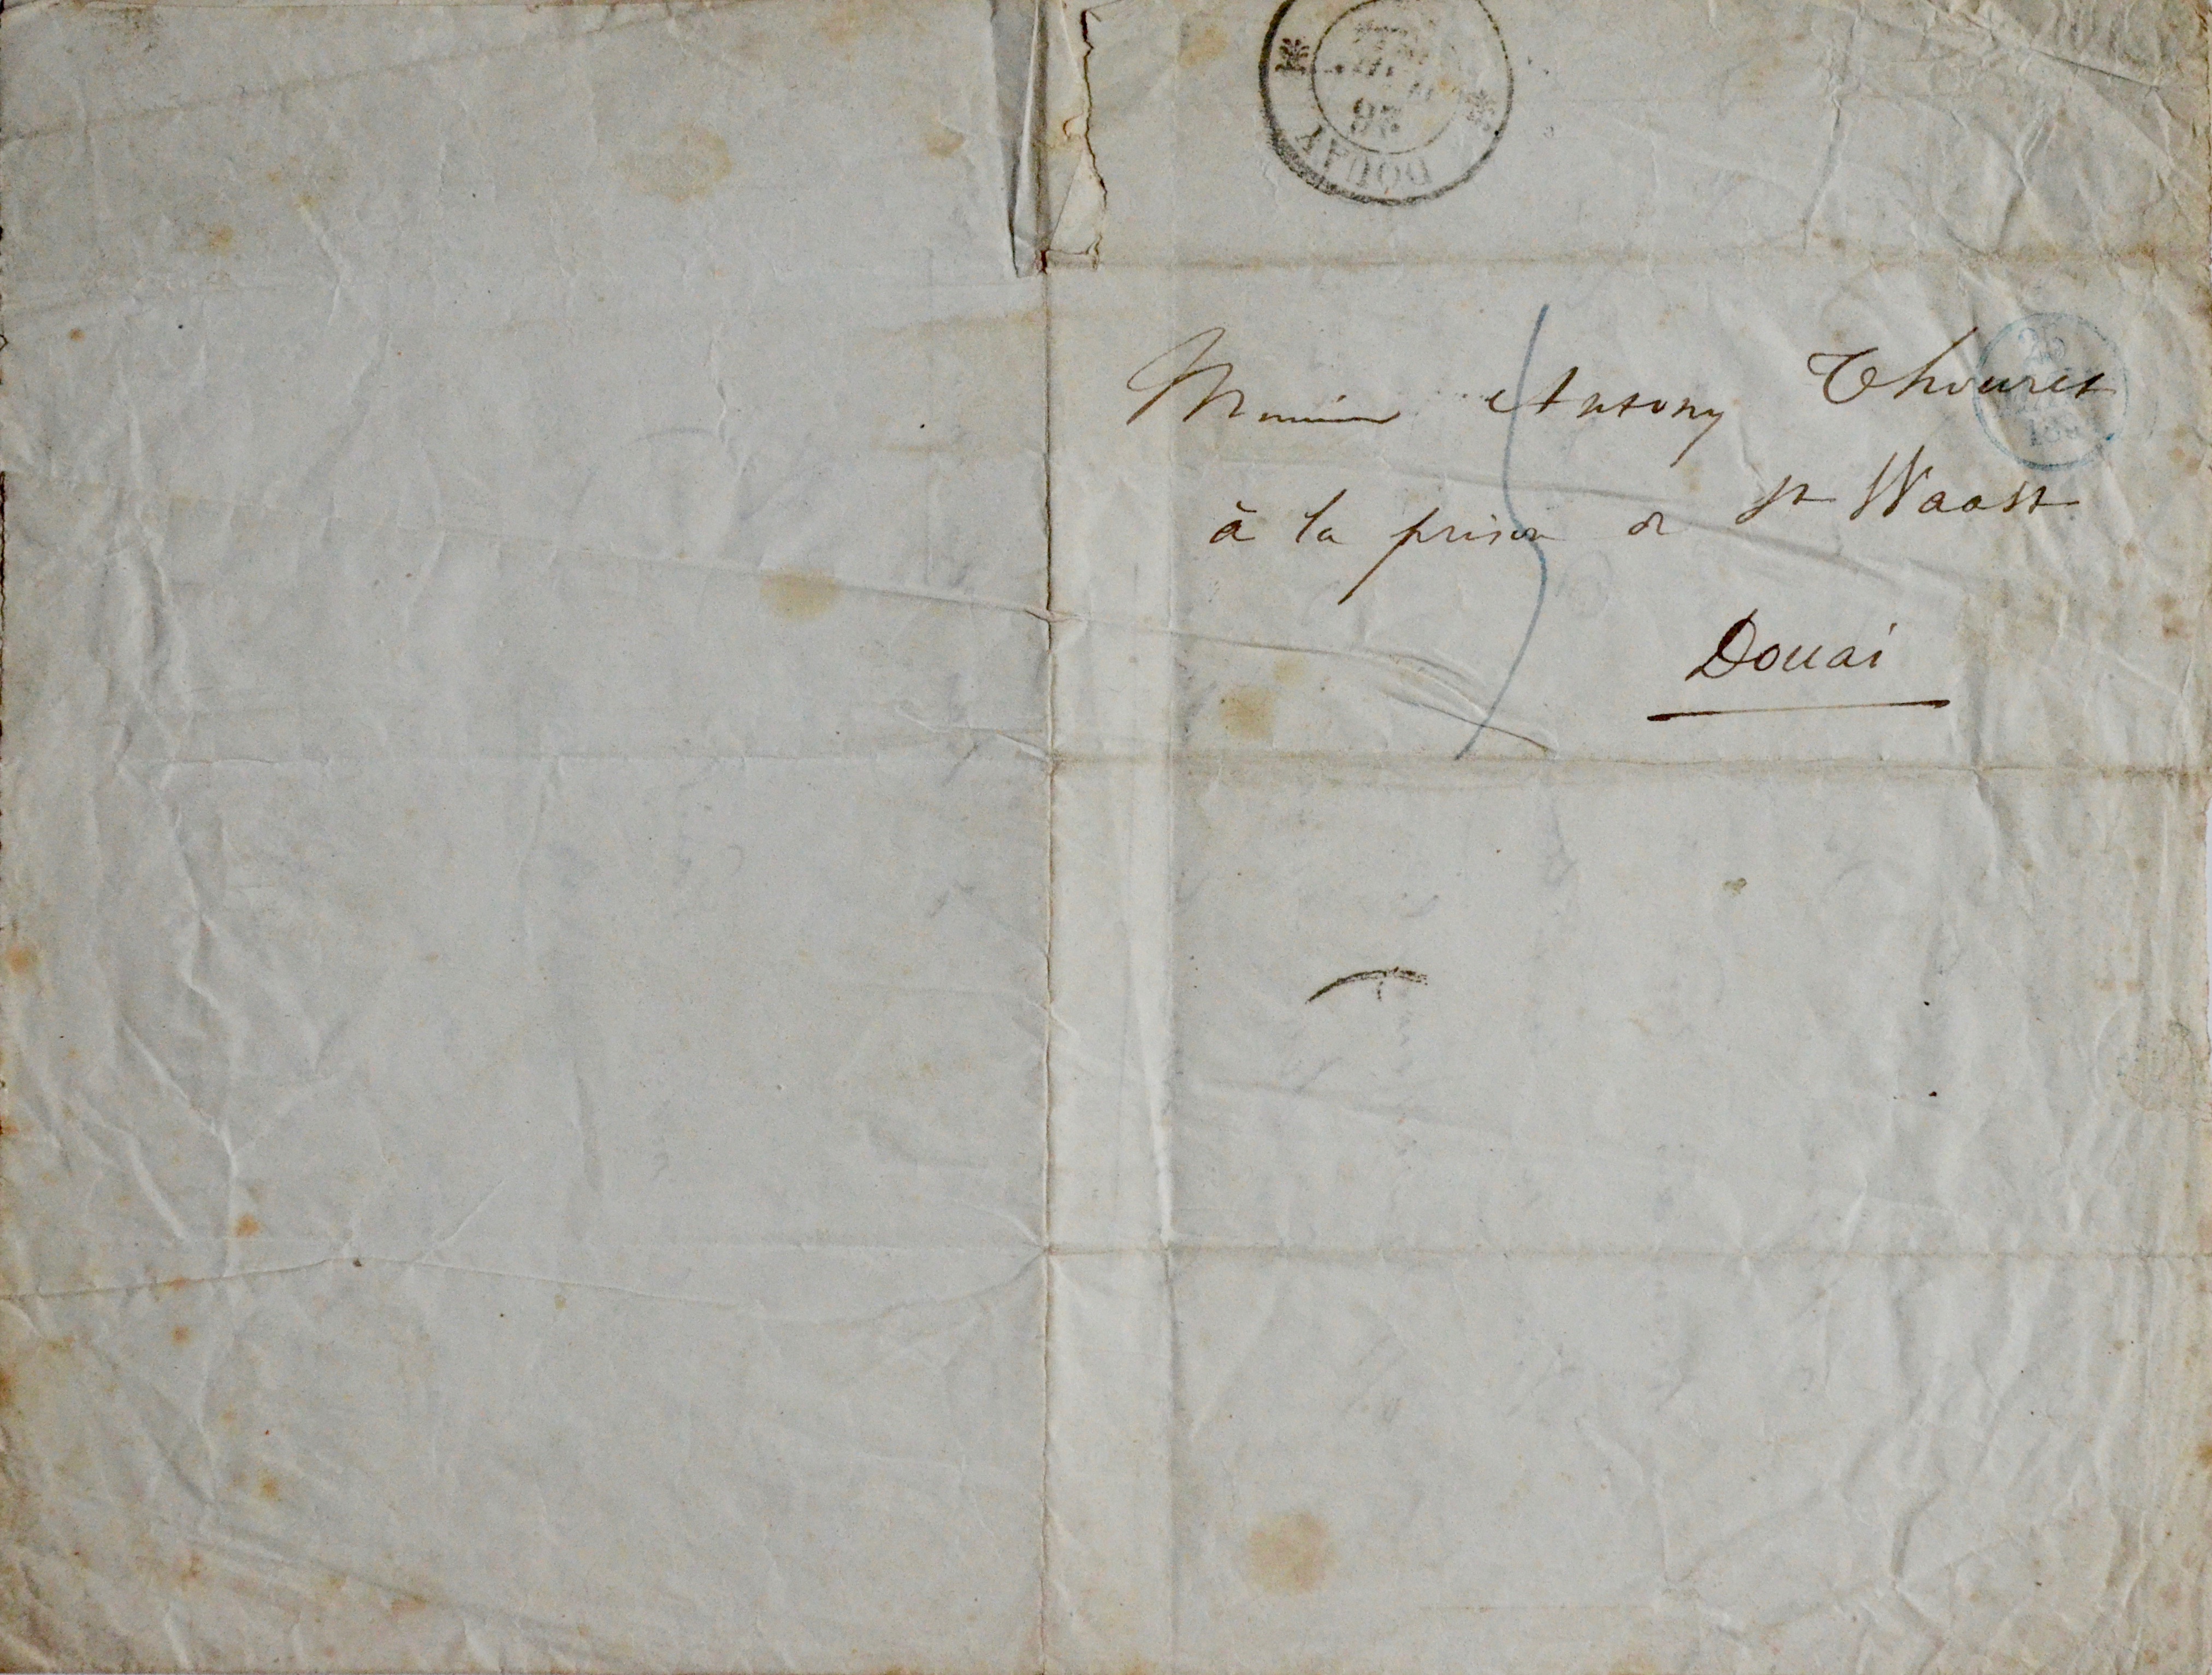 DOUAY
26
25
Monsieur Antony Thouret
à la prison de St Waast
Douai